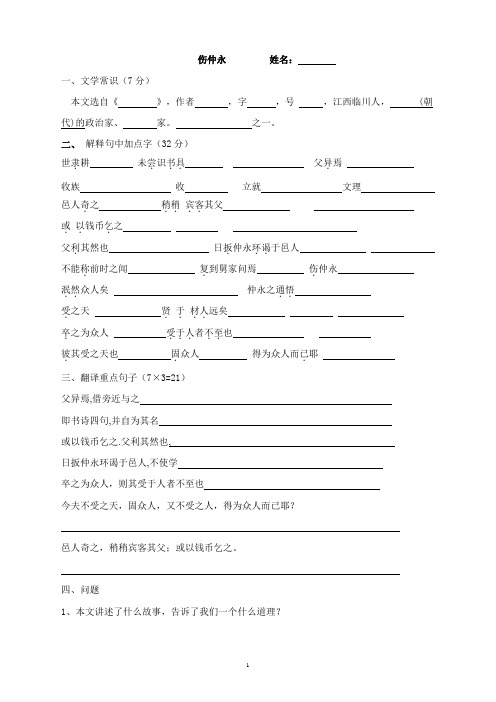 伤仲永 姓名：
一、文学常识（7分）
本文选自《 》，作者 ，字 ，号 ，江西临川人， （朝
代）的政治家、 家。 之一。
二、 解释句中加点字（32分）
世隶耕 未尝识书具 父异焉
收族 收 立就 文理
邑人奇之 稍稍 宾客其父
或 以钱币乞之
父利其然也 日扳仲永环谒于邑人
不能称前时之闻 复到舅家问焉 伤仲永
泯然众人矣 仲永之通悟
受之天 贤 于 材人远矣
卒之为众人 受于人者不至也
彼其受之天也 固众人 得为众人而已耶
三、翻译重点句子（7×3=21）
父异焉,借旁近与之
即书诗四句,并自为其名
或以钱币乞之.父利其然也.
日扳仲永环谒于邑人,不使学
卒之为众人，则其受于人者不至也
今夫不受之天，固众人，又不受之人，得为众人而已耶？
邑人奇之，稍稍宾客其父；或以钱币乞之。
四、问题
1、本文讲述了什么故事，告诉了我们一个什么道理？
1